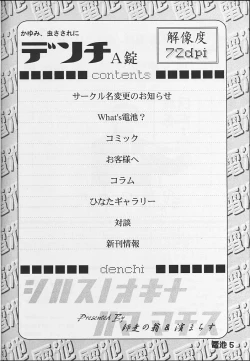 かゆみ、虫さされに
デンチA錠
解像度
72dpi
contents
サークル名変更のお知らせ
What's電池?
コミック
お客様へ
コラム
ひなたギャラリー
対談
新刊情報
denchi
シルスノオキナ
Presented By
師走の翁&濱まらす
電池 5